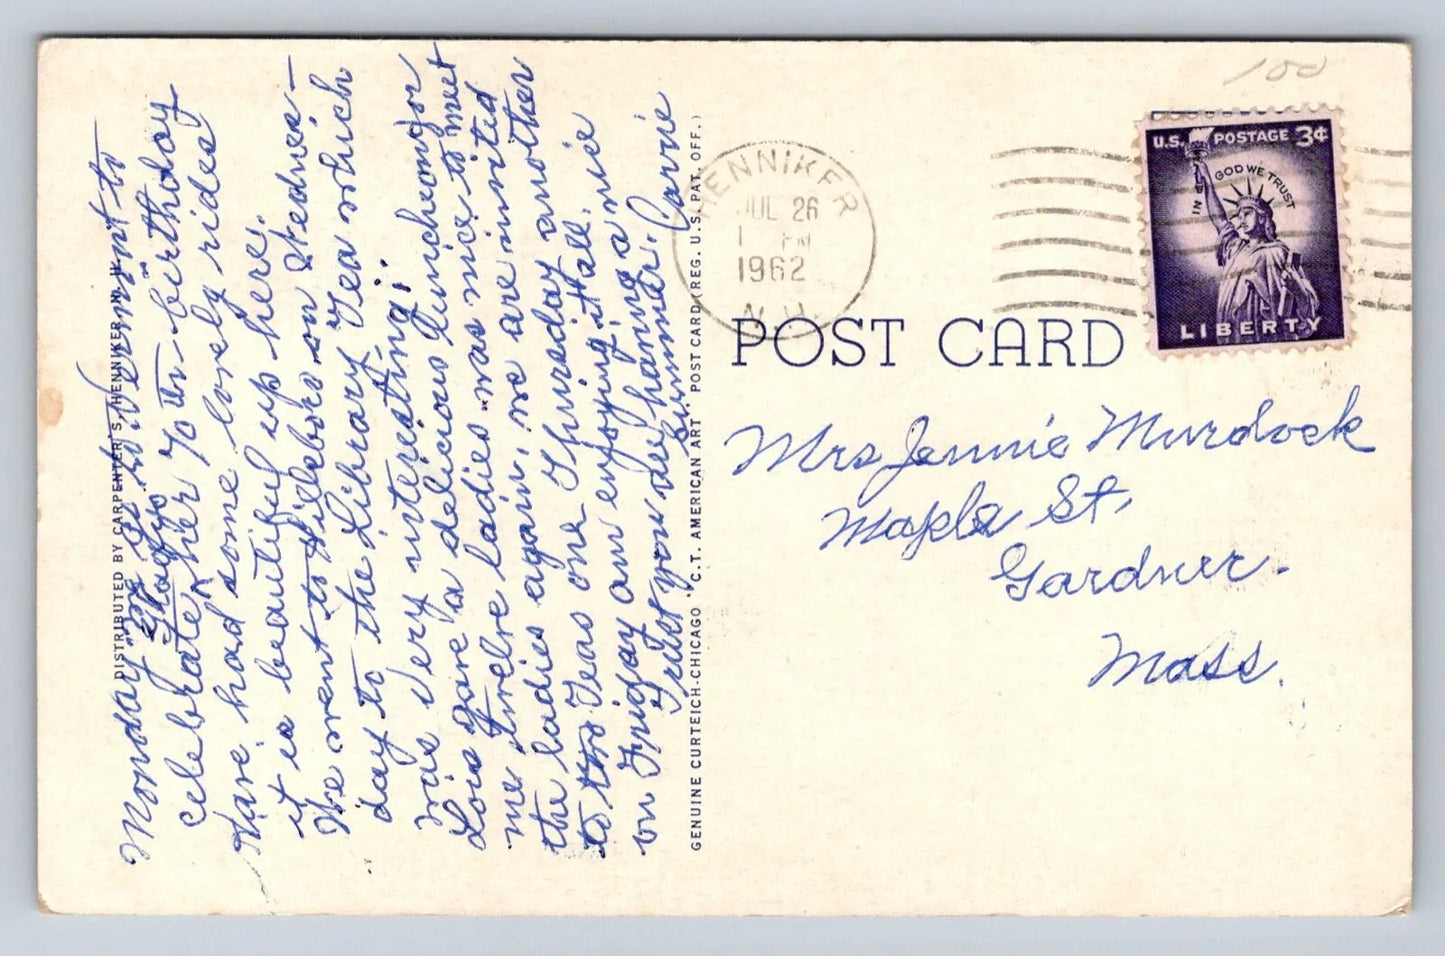 100
U.S. POSTAGE 3¢
IN GOD WE TRUST
LIBERTY
HENNIKER
JUL 26
1 PM
1962
N.H.
POST CARD
Mrs Jennie Murdock
Maple St.
Gardner.
Mass.
DISTRIBUTED BY CARPENTER'S, HENNIKER, N. H.
GENUINE CURTEICH-CHICAGO "C.T. AMERICAN ART" POST CARD (REG. U.S. PAT. OFF.)
Monday we go to Vermont to
celebrate Gladys 70 th birthday
Have had some lovely rides
it is beautiful up here.
We went to Hillsboro on Wednes-
day to the Library Tea which
was very interesting.
Lois gave a delicious luncheon for
me twelve ladies was nice to meet
the ladies again. we are invited
to two Teas one Thursday another
on Friday am enjoying it all.
Trust you are having a nice
summer. Carrie